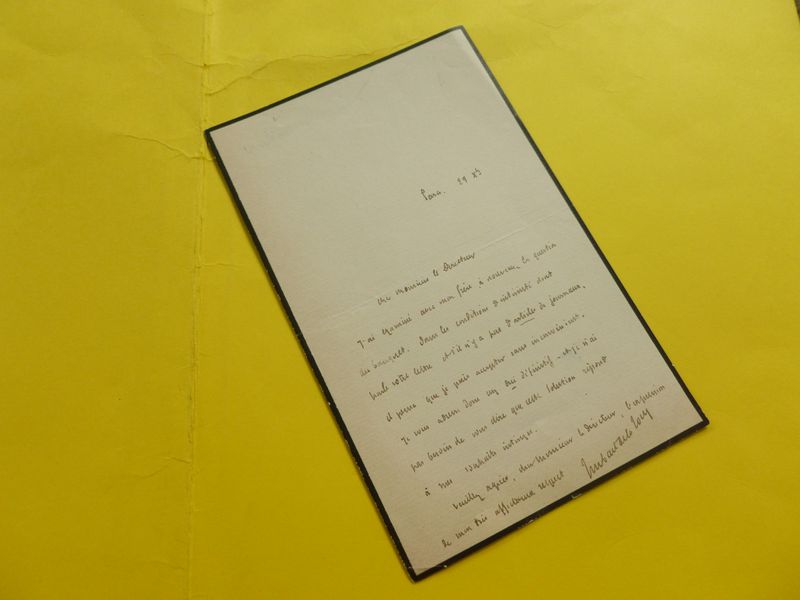 Paris. 29 X
Cher Monsieur le Directeur
J'ai examiné avec mon frère à nouveau la question
du banquet. Dans les conditions d'intimité dont
parle votre lettre et s'il n'y a pas d'articles de journaux,
il pense que je puis accepter sans inconvénient.
Je vous adresse donc un oui définitif - et je n'ai
pas besoin de vous dire que cette solution répond
à mes souhaits intimes.
Veuillez agréer, cher Monsieur le Directeur, l'expression
de mon très affectueux respect
Imbart de la Tour